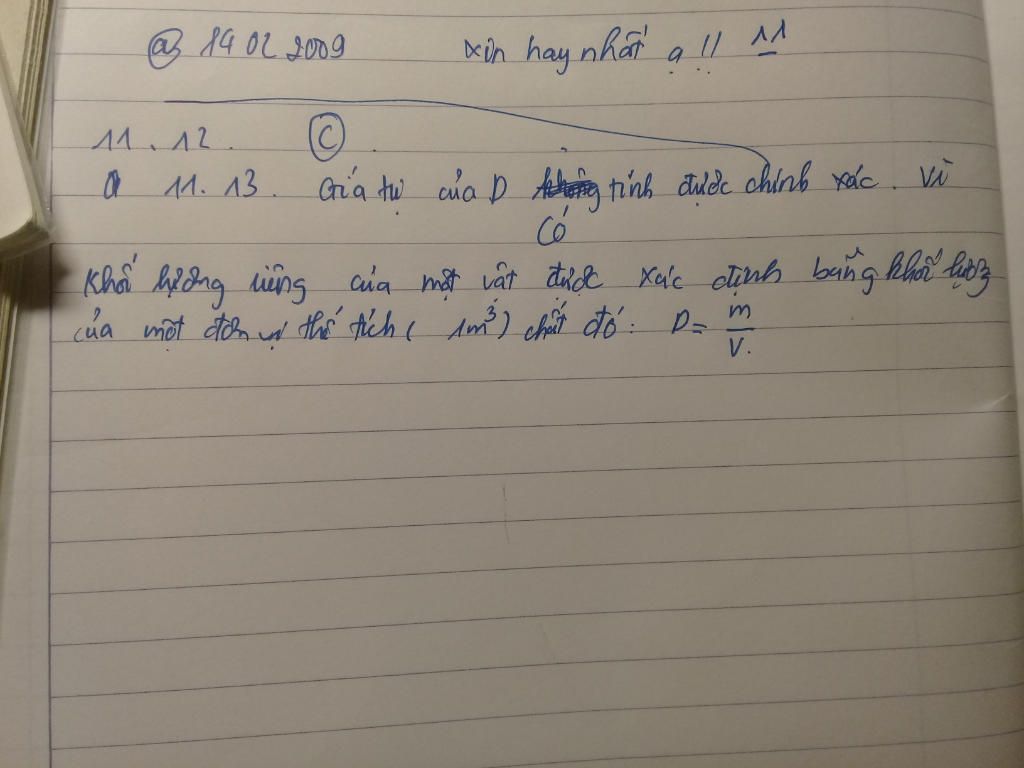 @ 14 02 2009 xin hay nhất ạ !! 11
11.12. C
11.13. Giá trị của D tính được chính xác. Vì
Có
Khối lượng riêng của một vật được xác định bằng khối lượng
của một đơn vị thể tích ( 1m³) chất đó: D = m/V.